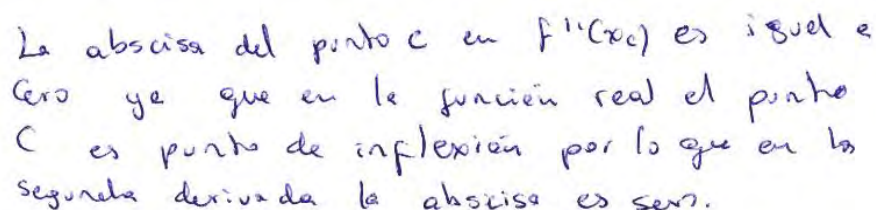 La abscisa del punto c en f''(xc) es igual a
Cero ya que en la función real el punto
C es punto de inflexión por lo que en la
segunda derivada la abscisa es sero.